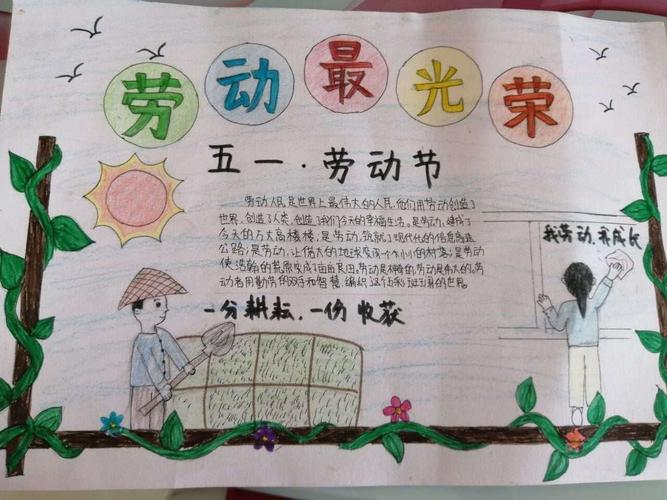 劳动最光荣
五一·劳动节
劳动人民是世界上最伟大的人民,他们用劳动创造了
世界,创造了人类,创造了我们今天的幸福生活。是劳动,建成了
今天的万丈高楼;是劳动,筑就了现代化的信息高速
公路;是劳动,让偌大的地球变成一个小小的村落;是劳动
使浩瀚的荒原变成了亩亩良田。劳动是神奇的,劳动是伟大的。劳
动者用勤劳的双手和智慧,编织了这个五彩斑斓的世界。
我劳动,我成长
一分耕耘,一份收获